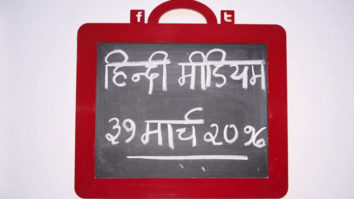 f t
हिन्दी मीडियम
३१ मार्च २०१७